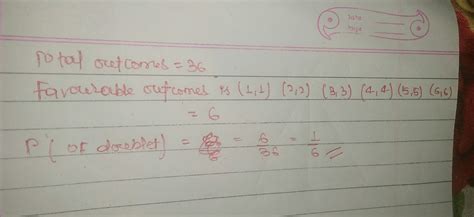 Total outcomes = 36
Favourable outcomes is (1,1) (2,2) (3,3) (4,4) (5,5) (6,6)
= 6
P (of doublet) = = 6/36 = 1/6